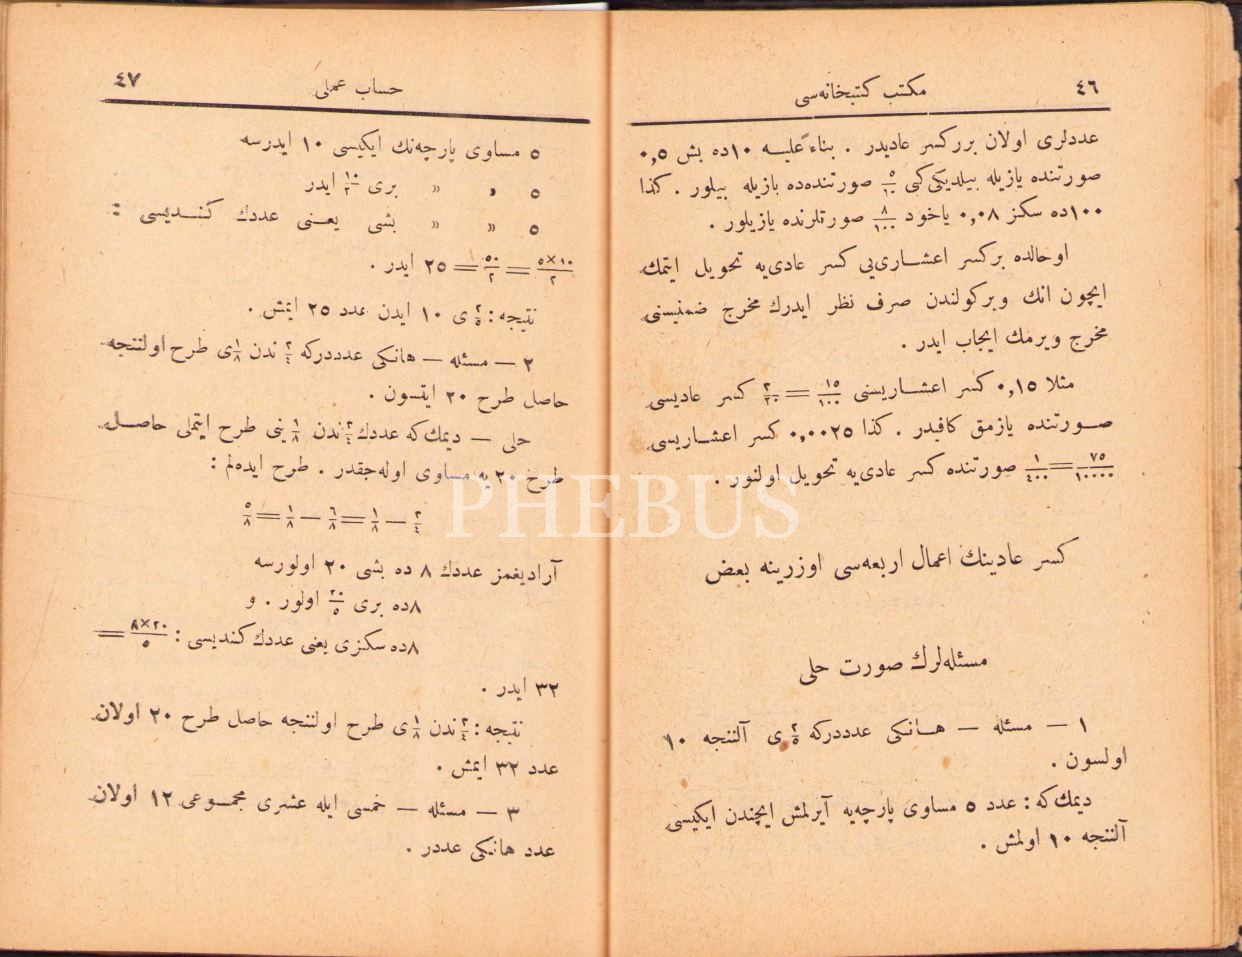 ٤٦
مكتب كتبخانه‌سی
عددلری اولان برر كسر عادیدر . بناءً علیه ١٠ده بش ٠,٥
صورتنده یازیله بیلدیكی كبی ٥/١٠ صورتنده‌ده یازیله بیلور . كذا
١٠٠ده سكز ٠,٠٨ یاخود ٨/١٠٠ صورتلرنده یازیلور .
اوحالده بركسر اعشاری‌یی كسر عادی‌یه تحویل ایتمك
ایچون انك ویركولندن صرف نظر ایدرك مخرج ضمنیسنی
مخرج ویرمك ایجاب ایدر .
مثلا ٠,١٥ كسر اعشاریسنی ١٥/١٠٠ = ٣/٢٠ كسر عادیسی
صورتنده یازمق كافیدر . كذا ٠,٠٠٢٥ كسر اعشاریسی
٧٥/١٠٠٠٠ = ١/٤٠٠ صورتنده كسر عادی‌یه تحویل اولنور .
كسر عادینك اعمال اربعه‌سی اوزرینه بعض
مسئله‌لرك صورت حلی
١ — مسئله — هانكی عدددركه ٢/٥ ی آلنجه ١٠
اولسون .
دیمك كه : عدد ٥ مساوی پارچه‌یه آیرلمش ایچندن ایكیسی
آلنجه ١٠ اولمش .
حساب عملی
٤٧
٥ مساوی پارچه‌نك ایكیسی ١٠ ایدرسه
٥ » » بری ١٠/٢ ایدر
٥ » » بشی یعنی عددك كندیسی :
٥×١٠/٢ = ٥٠/٢ = ٢٥ ایدر .
نتیجه : ٢/٥ ی ١٠ ایدن عدد ٢٥ ایمش .
٢ — مسئله — هانكی عدددركه ٣/٤ ندن ١/٨ ی طرح اولنجه
حاصل طرح ٢٠ ایتسون .
حلی — دیمك كه عددك ٣/٤ ندن ١/٨ ینی طرح ایتملی حاصل
طرح ٢٠ یه مساوی اوله‌جقدر . طرح ایده‌لم :
٣/٤ — ١/٨ = ٦/٨ — ١/٨ = ٥/٨
آرادیغمز عددك ٨ ده بشی ٢٠ اولورسه
٨ده بری ٢٠/٥ اولور . و
٨ده سكزی یعنی عددك كندیسی : ٨×٢٠/٥ =
٣٢ ایدر .
نتیجه : ٣/٤ ندن ١/٨ ی طرح اولنجه حاصل طرح ٢٠ اولان
عدد ٣٢ ایمش .
٣ — مسئله — خمسی ایله عشری مجموعی ١٢ اولان
عدد هانكی عددر .
PHEBUS